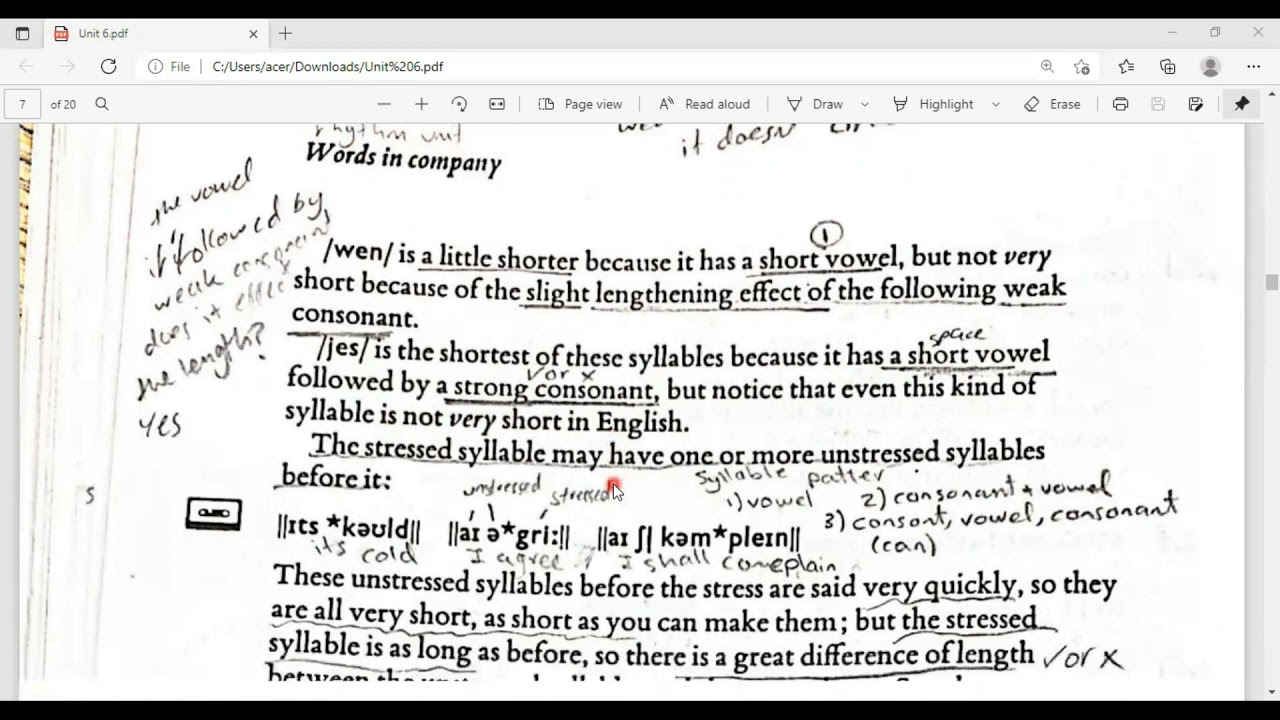 Unit 6.pdf
File C:/Users/acer/Downloads/Unit%206.pdf
7 of 20 Page view Read aloud Draw Highlight Erase
rhythm unit
it doesn
Words in company
the vowel
followed by
weak
does it
the length?
yes
1
/wen/ is a little shorter because it has a short vowel, but not very
short because of the slight lengthening effect of the following weak
consonant.
/jes/ is the shortest of these syllables because it has a short vowel
v or x
followed by a strong consonant, but notice that even this kind of
syllable is not very short in English.
The stressed syllable may have one or more unstressed syllables
before it:
unstressed stressed
syllable patter
1) vowel 2) consonant + vowel
3) consont, vowel, consonant
(can)
5
||ɪts *kəʊld|| ||aɪ ə*gri:|| ||aɪ ʃl kəm*pleɪn||
it's cold I agree I shall comeplain
These unstressed syllables before the stress are said very quickly, so they
are all very short, as short as you can make them; but the stressed
syllable is as long as before, so there is a great difference of length
✓or x
between the